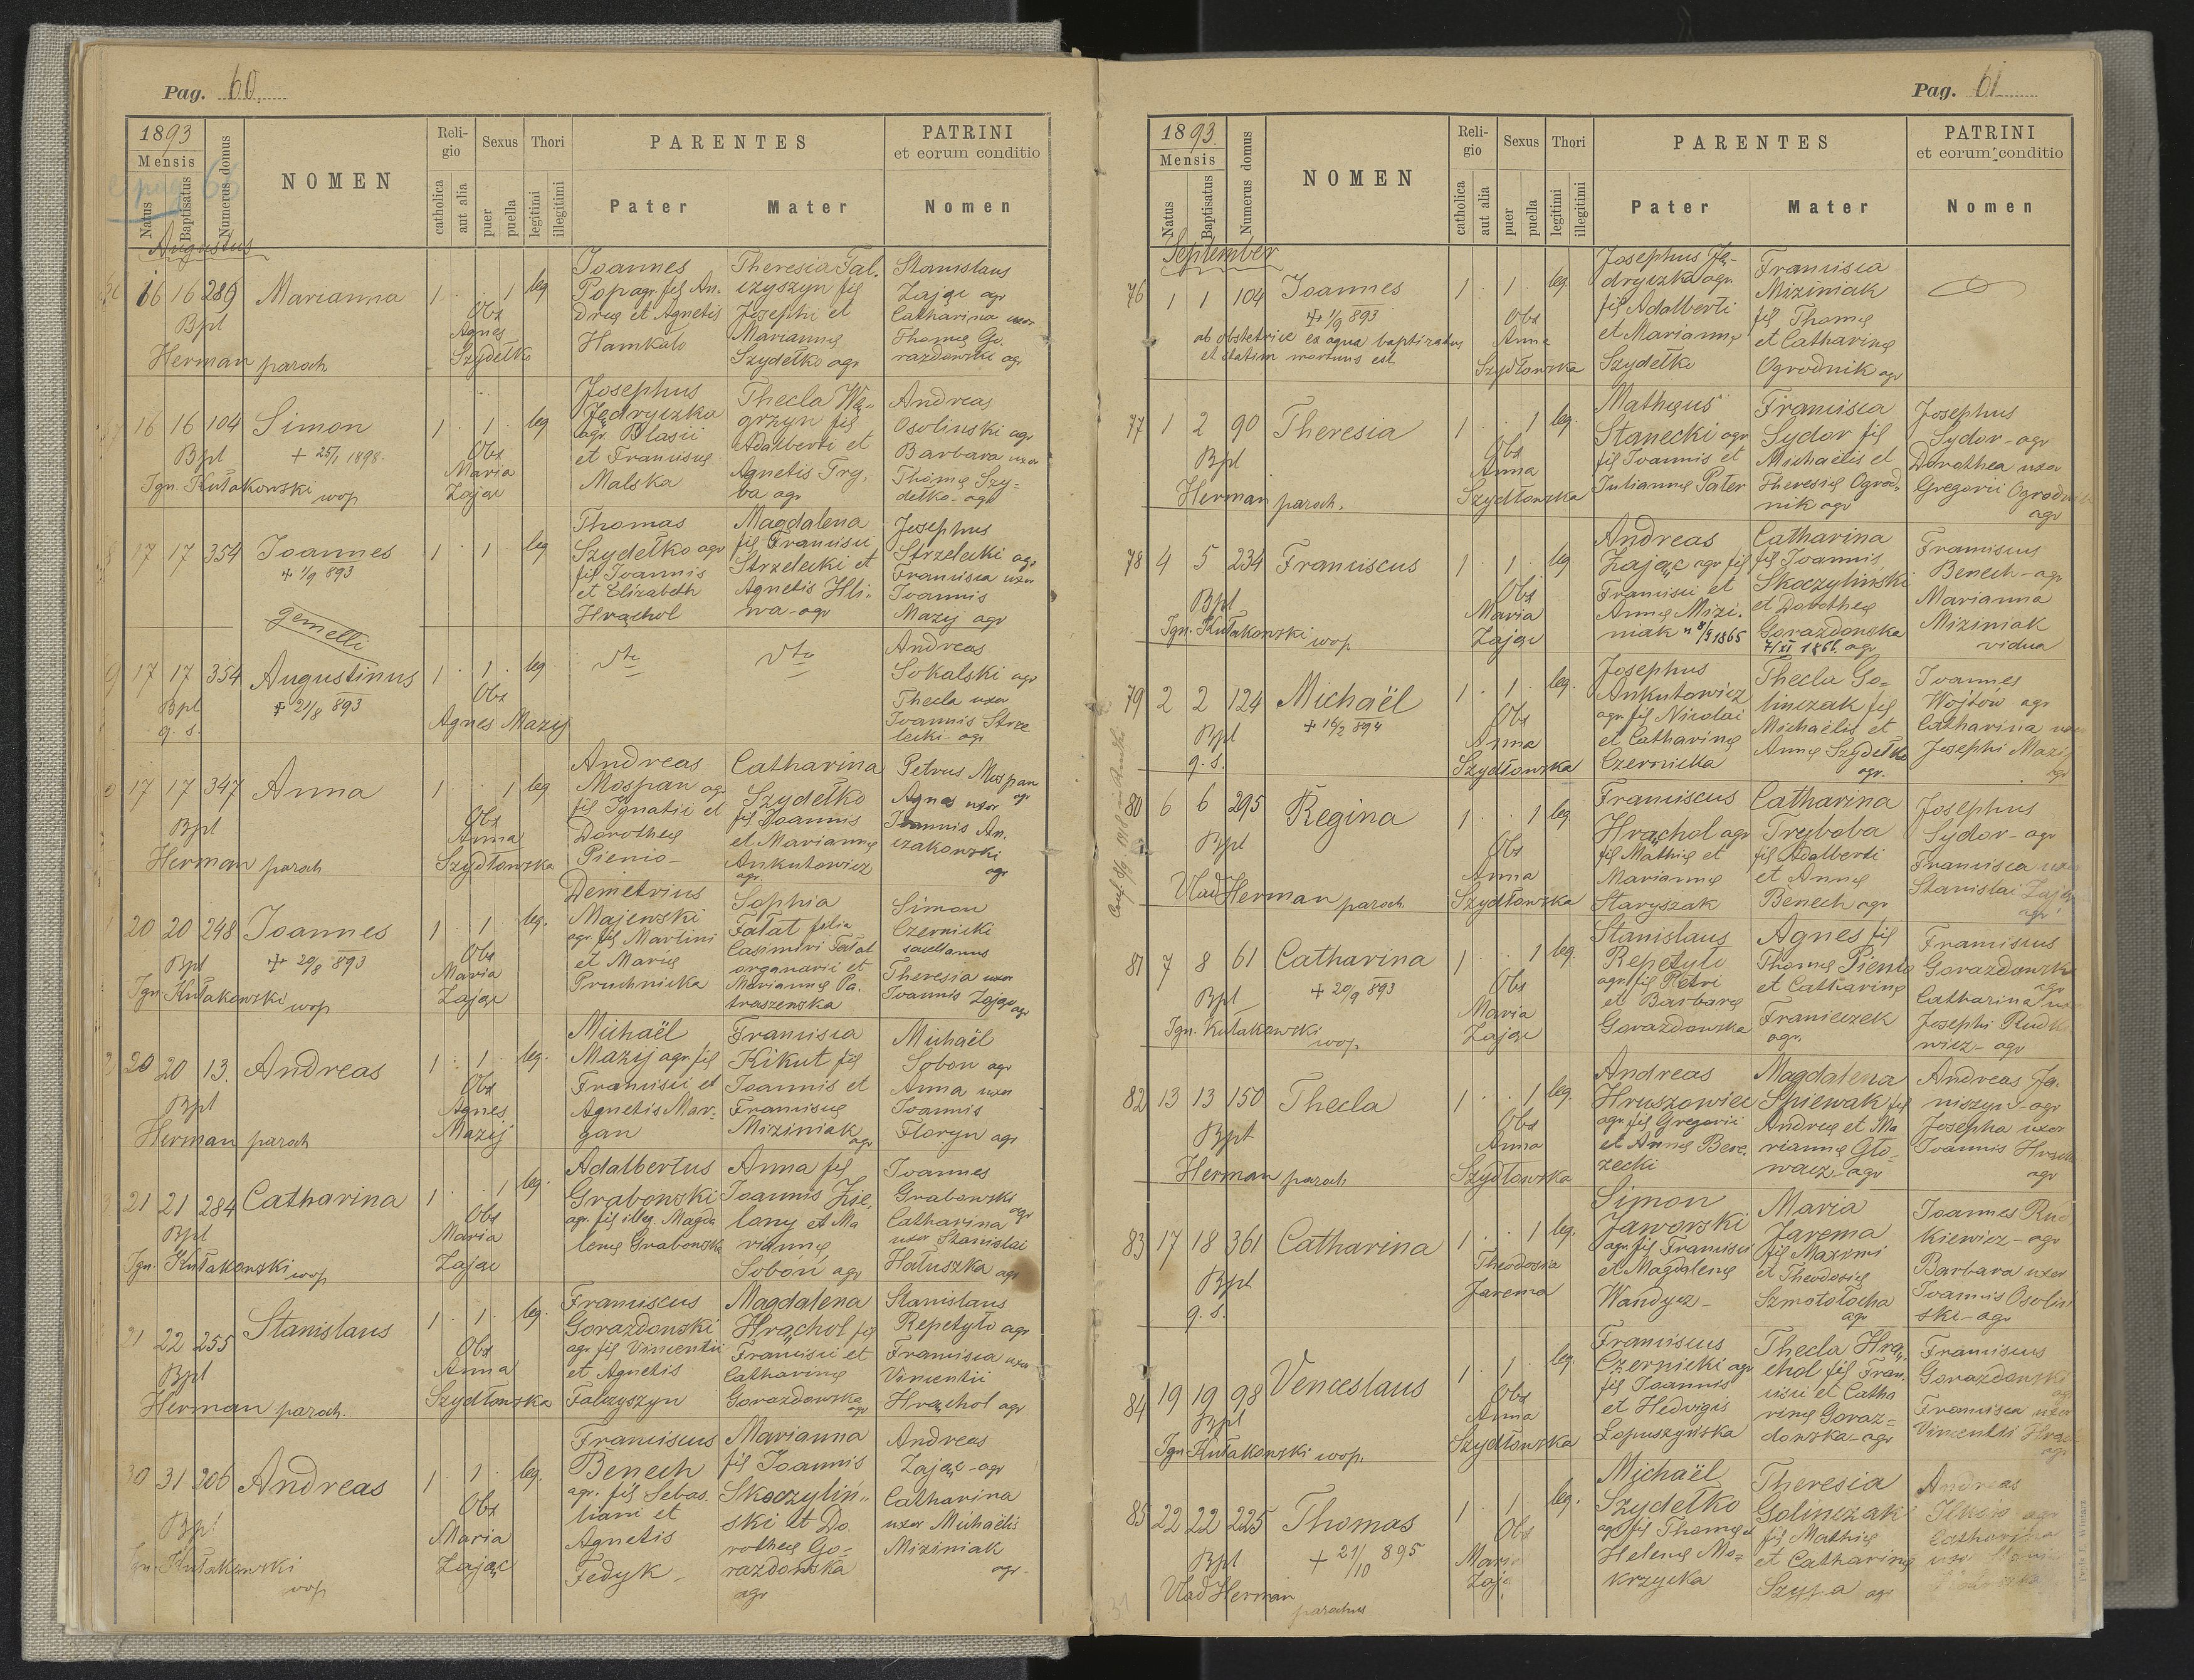 Pag. 60.
1893
Mensis
Natus
Baptisatus
Numerus domus
NOMEN
Religio
catholica
aut alia
Sexus
puer
puella
Thori
legitimi
illegitimi
PARENTES
Pater
Mater
PATRINI
et eorum conditio
Nomen
Augustus
16 16 289 Marianna 1 1 leg
Bpl
Herman paroch
Obs
Agnes
Szydełko
Joannes
Pop agr. fil An.
dreę et Agnetis
Hamkało
Theresia Fal.
czyszyn fil
Josephi et
Mariannę
Szydełko agr
Stanislaus
Zając agr
Catharina uxor
Thomę Go.
razdowski agr
16 16 104 Simon 1 1 leg
Bpl + 25/1 1898.
Ign. Kułakowski wop
Obs
Maria
Zając
Josephus
Jędryczka
agr. Blasii
et Franciscę
Malska
Thecla Wę-
grzyn fil
Adalberti et
Agnetis Try,
ba agr
Andreas
Osolinski agr
Barbara uxor
Thomę Szy=
dełko-agr
17 17 354 Joannes 1 1 leg
+ 1/9 893
Thomas
Szydełko agr
fil Joannis
et Elizabeth
Hrąchol
Magdalena
fil Francisci
Strzelecki et
Agnetis Hli-
wa-agr
Josephus
Strzelecki agr
Francisca uxor
Joannis
Mazij agr
gemelli
17 17 354 Augustinus 1 1 leg
Bpl + 21/8 893
q. s.
Obs
Agnes Mazij
Andreas
Sokalski agr
Thecla uxor
Joannis Strze
lecki-agr
17 17 347 Anna 1 1 leg
Bpl
Herman paroch
Obs
Anna
Szydłowska
Andreas
Mospan agr
fil Ignatii et
Dorotheę
Pienio-
Catharina
Szydełko
fil Joannis
et Mariannę
Ankutowicz
agr.
Petrus Mospan
agr
Agnes uxor
Joannis An.
czakowski
agr
20 20 248 Joannes 1 1 leg.
Bpl + 29/8 893
Ign Kułakowski wop
Obs
Maria
Zając
Demetrius
Majewski
agr. fil Martini
et Marię
Pruchnicka
Sophia
Fałat filia
Casimiri Fałat
organarii et
Mariannę Pa.
traszewska
Simon
Czernicki
Theresia uxor
Joannis Zając agr
20 20 13. Andreas 1 1 leg.
Bpl
Herman paroch
Obs
Agnes
Mazij
Michaël
Mazij agr. fil
Francisci et
Agnetis Mar.
gan
Francisca
Kikut fil
Joannis et
Franciscę
Miziniak agr
Michaël
Soboń agr
Anna uxor
Joannis
Floryn agr
21 21 284 Catharina 1 1 leg.
Bpl
Ign. Kułakowski wop
Obs
Maria
Zając
Adalbertus
Grabowski
agr. fil illeg. Magda
lenę Grabowska
Anna fil
Joannis Zie,
lony et Ma
riannę,
Soboń agr
Joannes
Grabowski agr
Catharina
uxor Stanislai
Hałuszka agr
21 22 255 Stanislaus 1 1 leg.
Bpl
Herman paroch.
Obs
Anna
Szydłowska
Franciscus
Gorazdowski
agr. fil Vincentii
et Agnetis
Falczyszyn
Magdalena
Hrąchol fil
Francisci et
Catharinę
Gorazdowska agr
Stanislaus
Repetyło agr
Francisca uxor
Vincentii
Hrąchol agr
30 31 206 Andreas 1 1 leg.
Bpl
Ign. Kułakowski
wop
Obs
Maria
Zając
Franciscus
Benech
agr. fil Sebas.
tiani et
Agnetis
Fedyk-
Marianna
fil Joannis
Skoczylin-
ski et Do.
rotheę Go=
razdowska
agr
Andreas
Zając-agr
Catharina
uxor Michaëlis
Miziniak
agr.
Pag. 61
1893.
Mensis
Natus
Baptisatus
Numerus domus
NOMEN
Religio
catholica
aut alia
Sexus
puer
puella
Thori
legitimi
illegitimi
PARENTES
Pater
Mater
PATRINI
et eorum conditio
Nomen
September
76 1 1 104 Joannes 1 1 leg.
+ 1/9 893
ab obstetrice ex aqua baptizatus
et statim mortuus est
Obs
Anna
Szydłowska
Josephus Ję-
dryczka agr.
fil Adalberti
et Mariannę
Szydełko
Francisca
Miziniak
fil Thomę
et Catharinę
Ogrodnik agr
77 1 2 90 Theresia 1 1 leg.
Bpl
Herman paroch.
Obs
Anna
Szydłowska
Matheus
Stanecki agr
fil Joannis et
Juliannę Pater
Francisca
Sydor fil
Michaëlis et
Theresię Ogrod-
nik agr
Josephus
Sydor-agr
Dorothea uxor
Gregorii
agr
78 4 5 234 Franciscus 1 1 leg.
Bpl
Ign. Kułakowski wop
Obs
Maria
Zając
Andreas
Zając agr fil
Francisci et
Annę Mizi.
niak n 8/9 1865
Catharina
fil Joannis,
Skoczyliński
et Dorotheę
Gorazdowska
7/XI 1866. agr
Franciscus
Benech-agr
Marianna
Miziniak
vidua
79 2 2 124 Michaël 1 1 leg.
Bpl + 16/2 894
q. s.
Obs
Anna
Szydłowska
Josephus
Ankutowicz
agr. fil Nicolai
et Catharinę
Czernicka
Thecla Go=
linczak fil
Michaëlis et
Annę Szydełko
agr.
Joannes
Wójtów agr
Catharina
Josephi Mazij
agr
80 6 6 295 Regina 1 1 leg.
Bpl
Vlad Herman paroch.
Obs
Anna
Szydłowska
Franciscus
Hrąchol agr
fil Mathię et
Mariannę
Staryszak
Catharina
Tryboba
fil Adalberti
et Annę
Benech agr
Josephus
Sydor-agr
Francisca uxor
Stanislai Zając
agr
81 7 8 61 Catharina 1 1 leg.
Bpl + 20/9 893
Ign. Kułakowski
wop
Obs
Maria
Zając
Stanislaus
Repetyło
agr. fil Petri
et Barbarę
Gorazdowska
Agnes fil
Thomę Pienio
et Catharinę
Franieczek
agr.
Franciscus
Gorazdowski
agr
Catharina
Josephi
wicz-agr
82 13 13 150 Thecla 1 1 leg.
Bpl
Herman paroch
Obs
Anna
Szydłowska
Andreas
Hruszowiec
agr. fil Gregorii
et Annę Bere.
zecki
Magdalena
Spiewak fil
Andreę et Ma
riannę Gło-
wacz-agr
Andreas Ja.
niszyn-agr
Josepha uxor
Joannis
agr
83 17 18 361 Catharina 1 1 leg.
Bpl
q. s.
Theodosia
Jarema
Simon
Jaworski
agr. fil Francisci
et Magdalenę
Wandycz-
Maria
Jarema
fil Maximi
et Theodosię
Szmotołocha
agr
Joannes Rud
kiewicz-agr
Barbara uxor
Joannis Osolin
ski-agr
84 19 19 98 Venceslaus 1 1 leg.
Bpl
Ign Kułakowski wop.
Obs
Anna
Szydłowska
Franciscus
Czernicki agr
fil Joannis
et Hedvigis
Łopuszyńska
Thecla Hrą-
chol fil Fran.
cisci et Catha
rinę Goraz=
dowska-agr
Franciscus
Gorazdowski
agr
Francisca uxor
Vincentii
agr.
85 22 22 225 Thomas 1 1 leg.
Bpl + 21/10 895
Vlad Herman
parochus
Obs
Maria
Zając
Michaël
Szydełko
agr fil Thomę et
Helenę Mo=
krzycka
Theresia
Golinczak
fil Mathię
et Catharinę
Szypa agr
Andreas
agr
Catharina
uxor